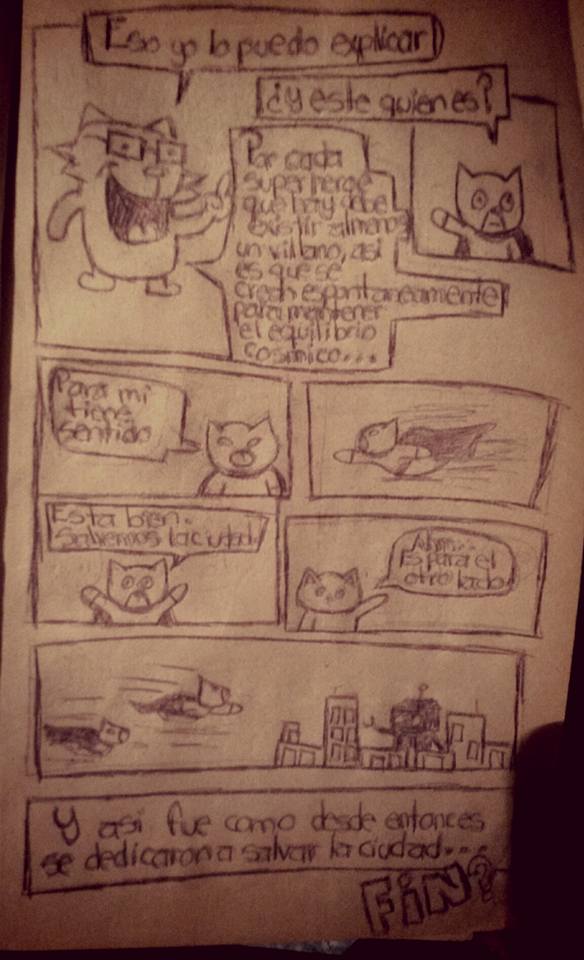 Eso yo lo puedo explicar
¿y este quien es?
Por cada
super heroe
que hay debe
existir almenos
un villano, asi
es que se
crean espontaneamente
para mantener
el equilibrio
cosmico...
Para mi
tiene
sentido
Esta bien.
Salvemos la ciudad
Ahm...
Es para el
otro lado
Y asi fue como desde entonces
se dedicaron a salvar la ciudad...
FiN?